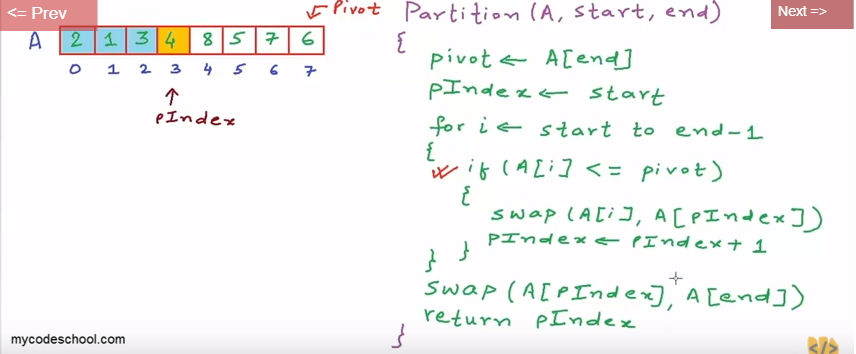 <= Prev
Pivot
Next =>
A
2 1 3 4 8 5 7 6
0 1 2 3 4 5 6 7
PIndex
Partition (A, start, end)
{
pivot ← A[end]
PIndex ← start
for i ← start to end-1
{
if (A[i] <= pivot)
{
swap (A[i], A[PIndex])
PIndex ← PIndex + 1
} }
swap (A[PIndex], A[end])
return PIndex
}
mycodeschool.com
</>